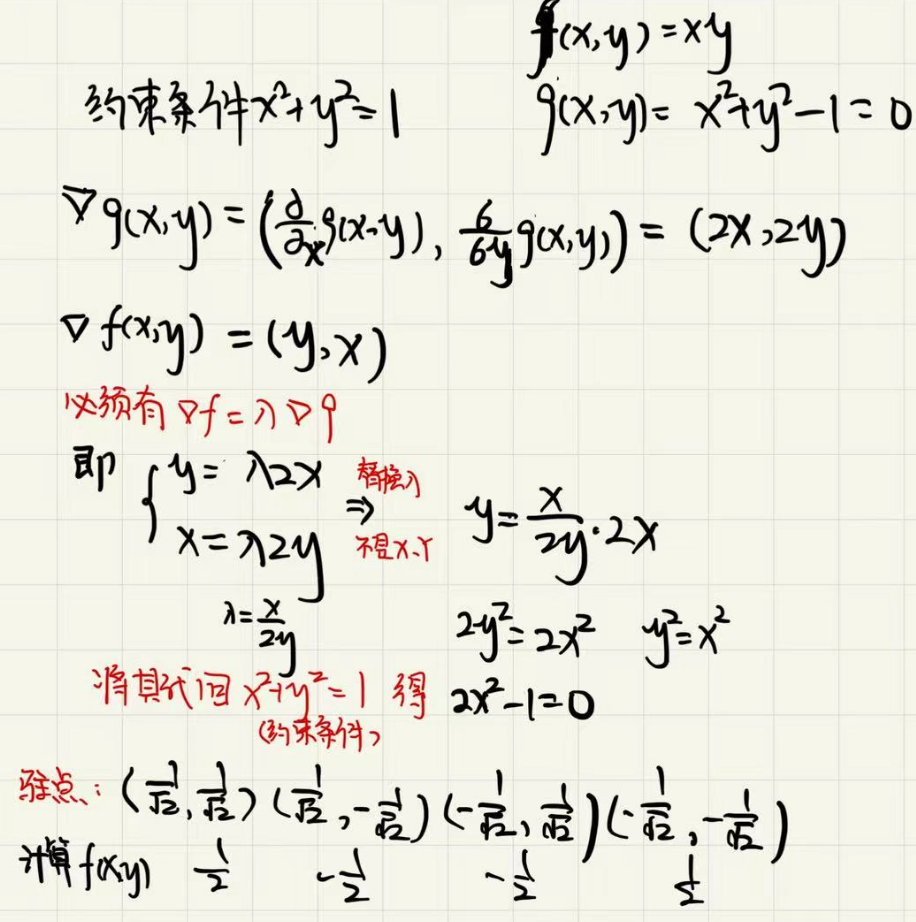 f(x,y)=xy
约束条件x²+y²=1
g(x,y)= x²+y²-1=0
∇g(x,y)=(∂/∂x g(x,y), 6/6y g(x,y))= (2x,2y)
∇f(x,y) =(y,x)
必须有 ∇f=λ∇g
即 { y= λ2x
x=λ2y
⇒ 替换λ
不是x、y
y=x/2y·2x
λ=x/2y
2y²=2x² y²=x²
将其代回 x²+y²=1 得 2x²-1=0
(约束条件)
驻点: (1/√2,1/√2) (1/√2,-1/√2) (-1/√2,1/√2) (-1/√2,-1/√2)
计算f(x,y) 1/2 -1/2 -1/2 1/2